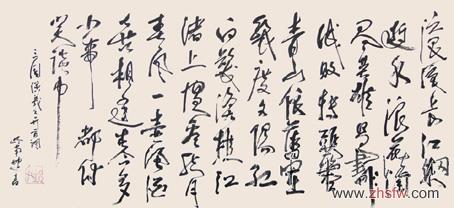 滚滚长江东
逝水浪花淘
尽英雄是非
成败转头空
青山依旧在
几度夕阳红
白发渔樵江
渚上惯看秋月
春风一壶浊酒
喜相逢古今多
少事都付
笑谈中
三国演义之开首词
www.zhsfw.com